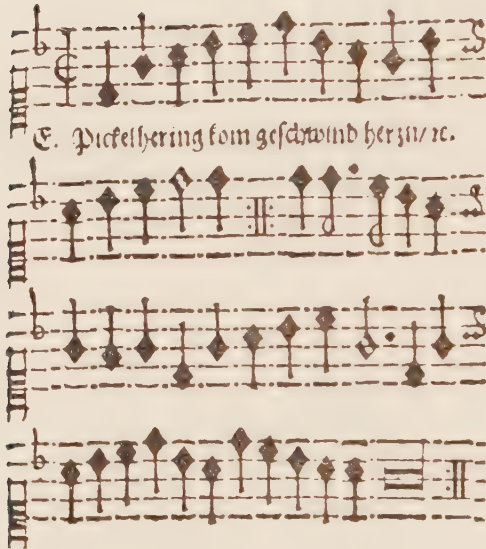 E. Pickelhering kom geschwind herzu/ ꝛc.